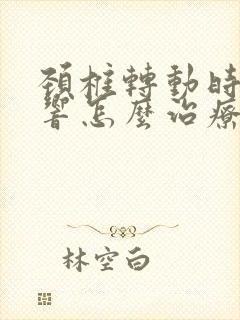 頸椎轉動時
響怎麼治療
林空白